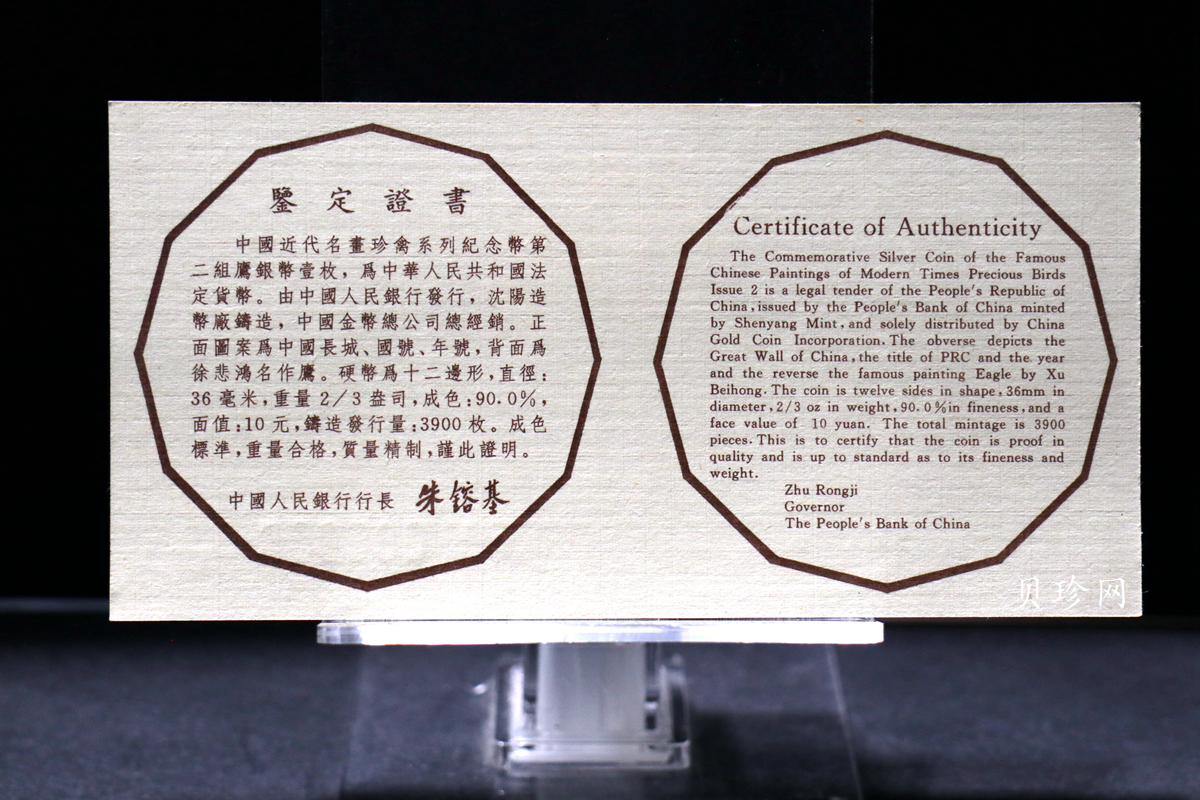 鑒定證書
中國近代名畫珍禽系列紀念幣第
二組鷹銀幣壹枚，爲中華人民共和國法
定貨幣。由中國人民銀行發行，沈陽造
幣廠鑄造，中國金幣總公司總經銷。正
面圖案爲中國長城、國號、年號，背面爲
徐悲鴻名作鷹。硬幣爲十二邊形，直徑：
36毫米，重量2/3盎司，成色：90.0%，
面值：10元，鑄造發行量：3900枚。成色
標準，重量合格，質量精制，謹此證明。
中國人民銀行行長 朱鎔基
Certificate of Authenticity
The Commemorative Silver Coin of the Famous
Chinese Paintings of Modern Times Precious Birds
Issue 2 is a legal tender of the People's Republic of
China, issued by the People's Bank of China minted
by Shenyang Mint, and solely distributed by China
Gold Coin Incorporation. The obverse depicts the
Great Wall of China, the title of PRC and the year
and the reverse the famous painting Eagle by Xu
Beihong. The coin is twelve sides in shape, 36mm in
diameter, 2/3 oz in weight, 90.0% in fineness, and a
face value of 10 yuan. The total mintage is 3900
pieces. This is to certify that the coin is proof in
quality and is up to standard as to its fineness and
weight.
Zhu Rongji
Governor
The People's Bank of China
贝珍网